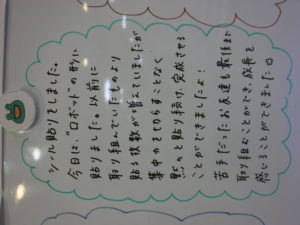 シール貼りをしました。
今日は、"ロボット"の形に
貼りました。以前に
取り組んでいたものより
貼る枚数が増えていましたが
集中力をきらすことなく
黙々と貼り続け、完成させる
ことができましたよ!
苦手だったお友達も最後まで
取り組むことができ、成長を
感じることができました。